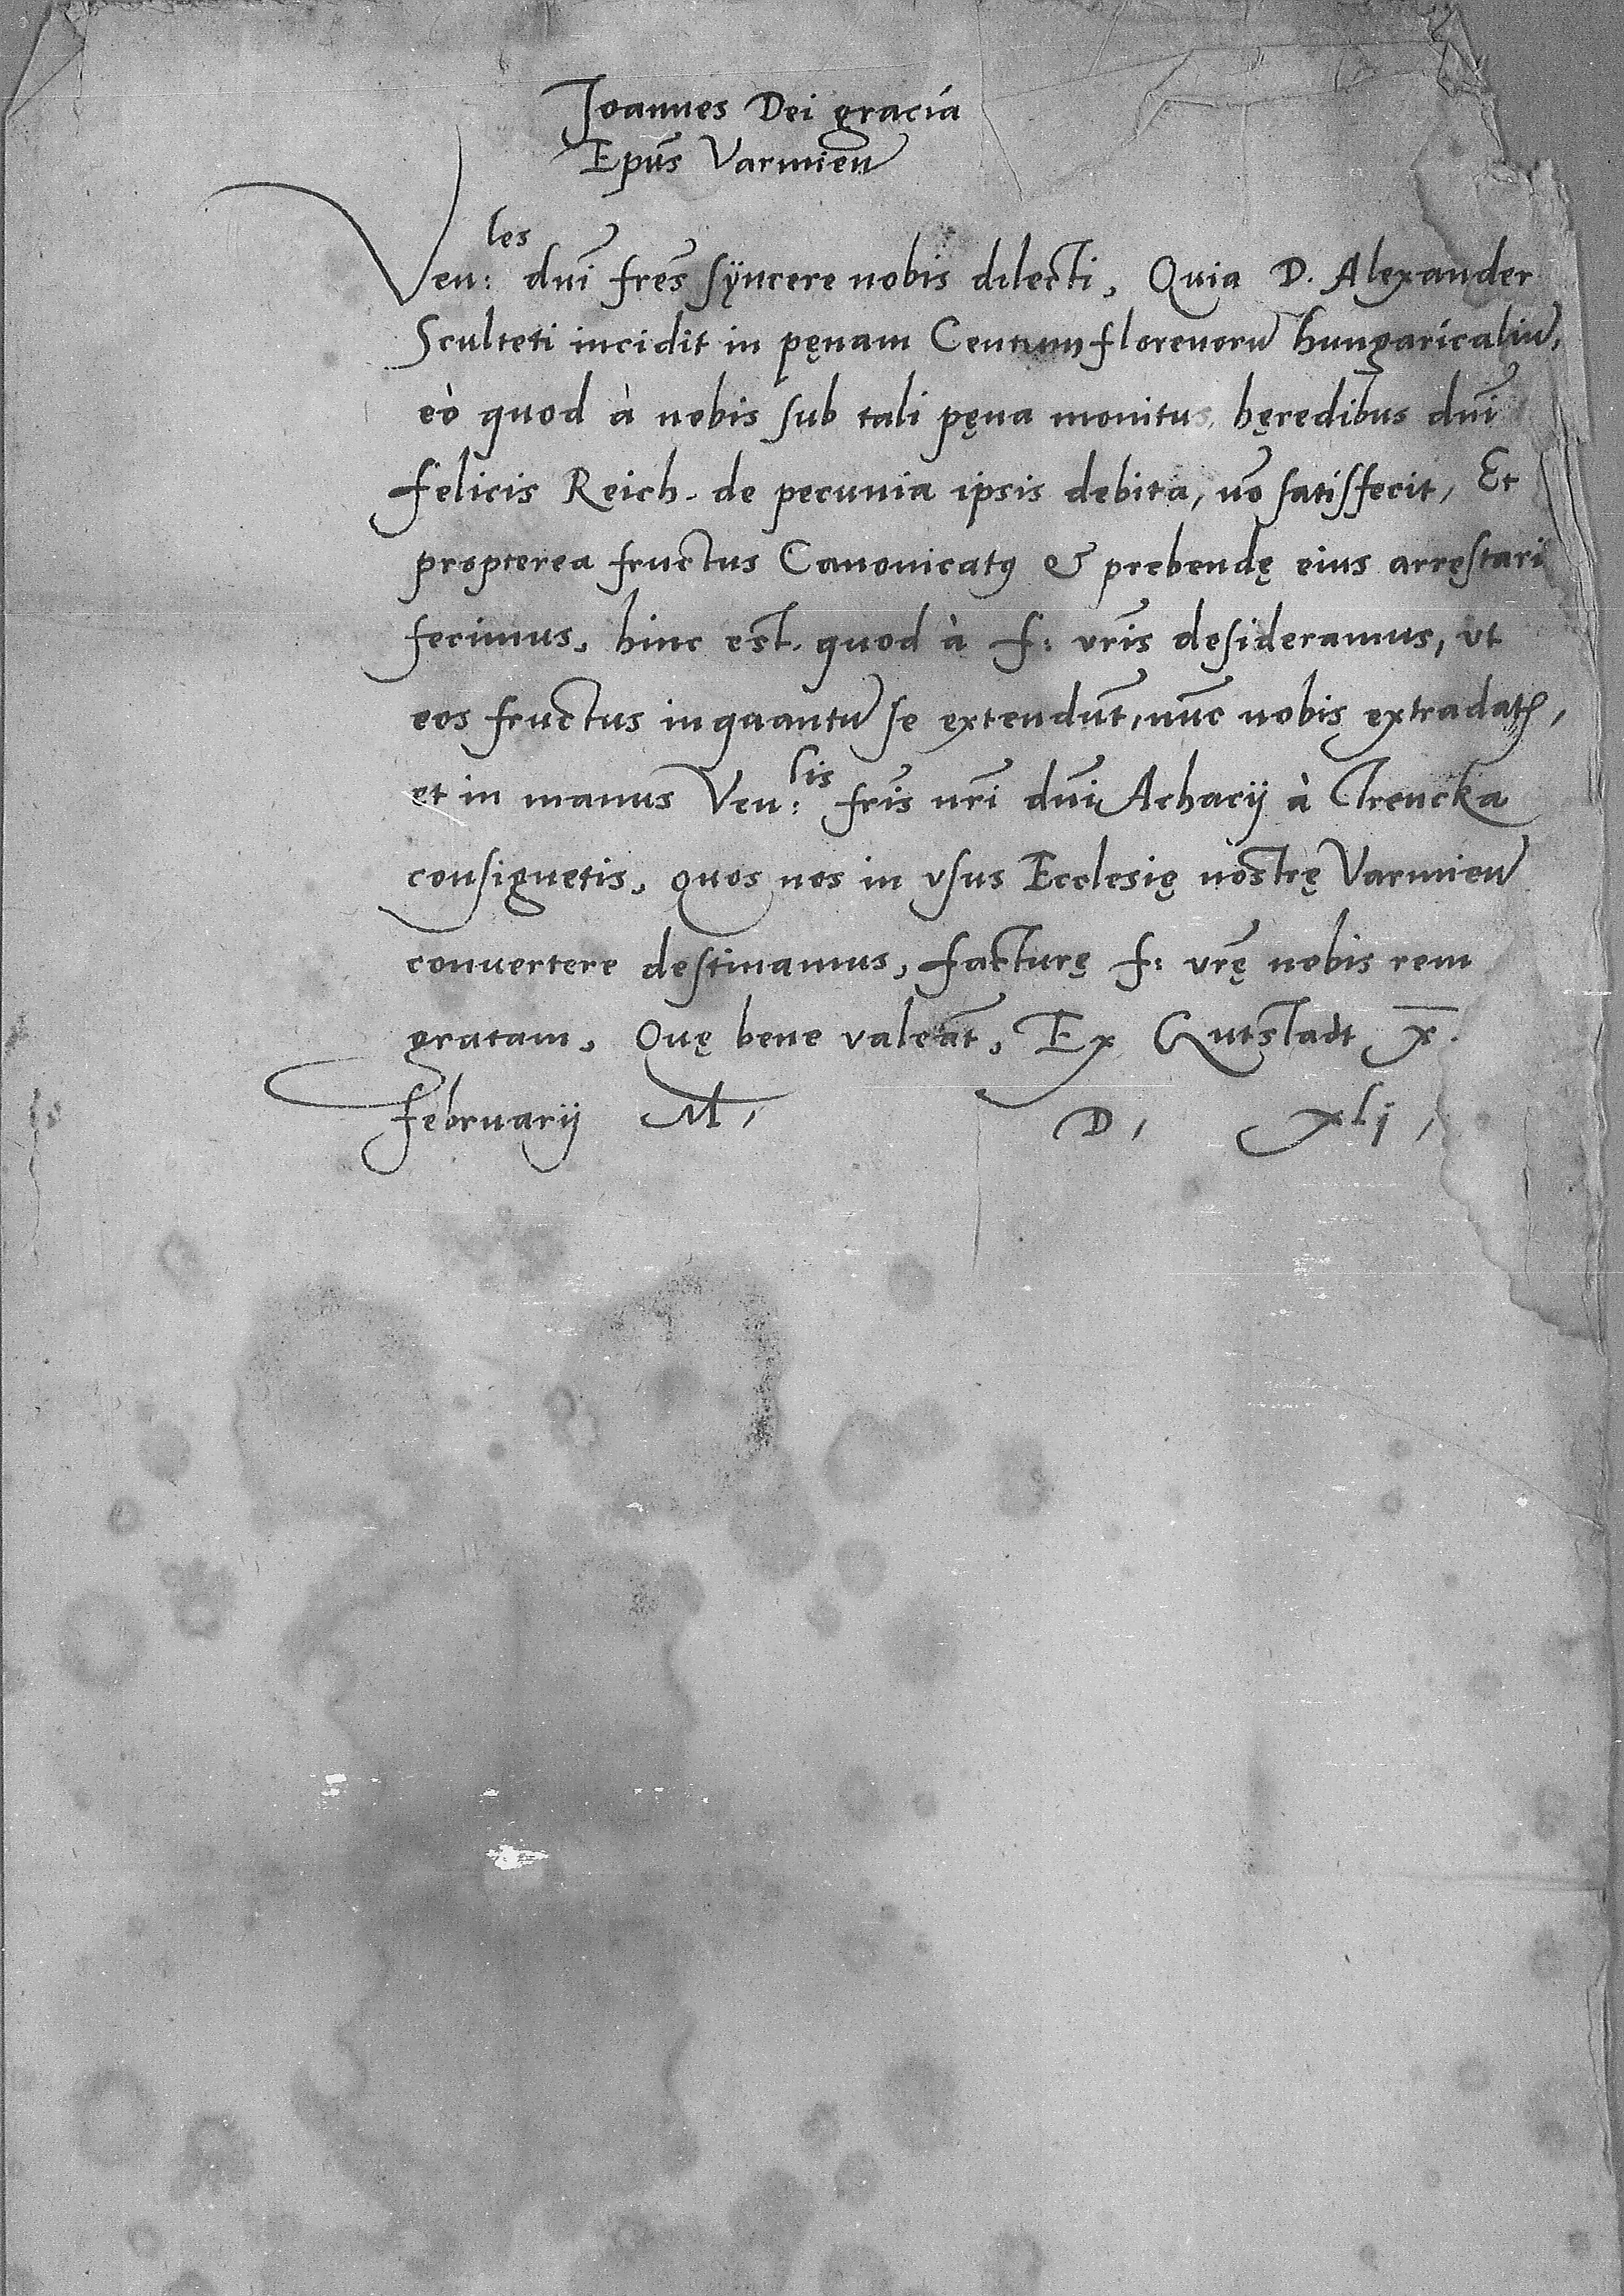 Joannes Dei gracia
Epūs Varmien̄
Ven:les dn̄i fr̄es sÿncere nobis dilecti, Quia D. Alexander
Sculteti incidit in pęnam Centum florenorū hungaricaliū,
eò quod à nobis sub tali pęna monitus, hęredibus dn̄i
felicis Reich. de pecunia ipsis debita, nō satisfecit, Et
propterea fructus Canonicatꝰ & prebendę eius arręstari
fecimus, hinc est. quod à f: vr̄is desideramus, vt
eos fructus inquantū se extendūt, nūc nobis extradatꝭ,
et in manus Ven:lis fr̄is nr̄i dn̄i Achacij à Trencka
consignetis, quos nos in vsus Ecclesię nostrę Varmien̄
conuertere destinamus, facturę f: vr̄ę nobis rem
gratam, Quę bene valeāt, Ex Gutstadt x̄.
februarij M, D, xlj,